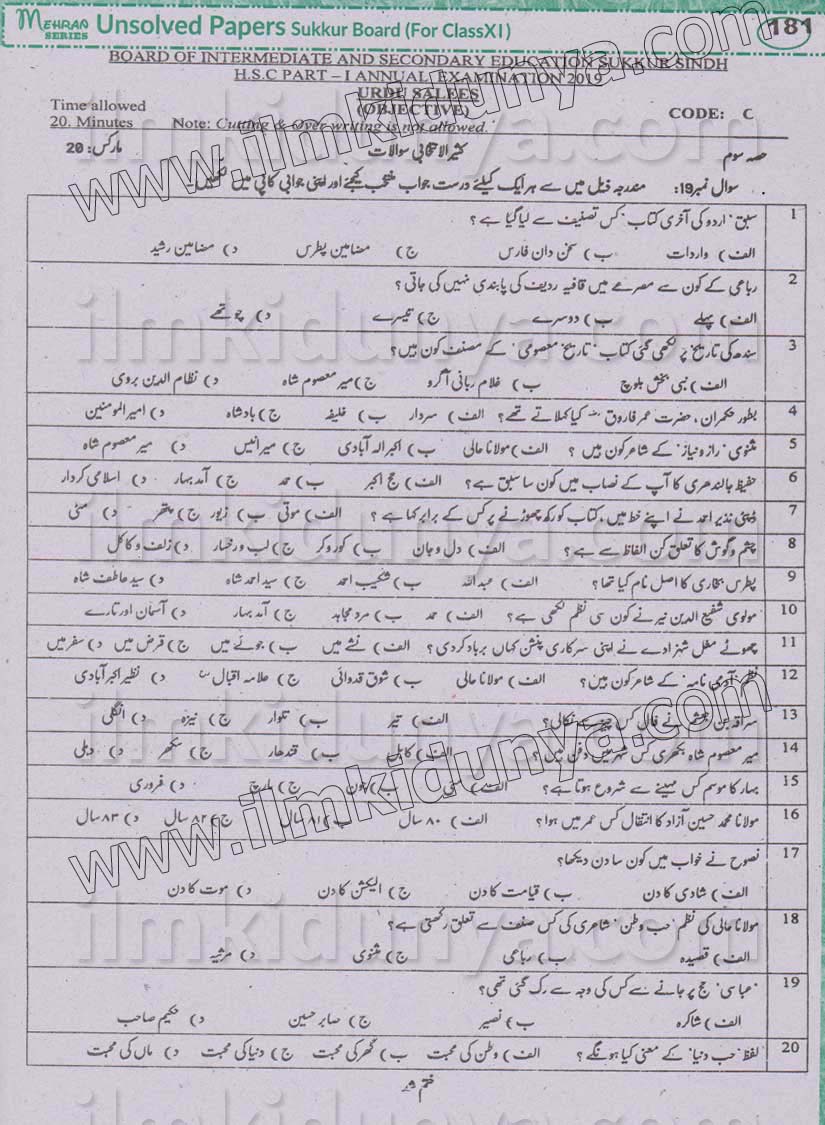 MEHRAN SERIES Unsolved Papers Sukkur Board (For ClassXI) 181
BOARD OF INTERMEDIATE AND SECONDARY EDUCATION SUKKUR SINDH
H.S.C PART – I ANNUAL EXAMINATION 2019
URDU SALEES
Time allowed (OBJECTIVE) CODE: C
20. Minutes Note: Cutting & over writing is not allowed.
حصہ سوم کثیر الانتخابی سوالات مارکس: 20
سوال نمبر 19: مندرجہ ذیل میں سے ہر ایک کیلئے درست جواب منتخب کیجئے اور اپنی جوابی کاپی میں لکھیں۔
1 سبق 'اردو کی آخری کتاب' کس تصنیف سے لیا گیا ہے؟
الف) واردات ب) سخن دان فارس ج) مضامین پطرس د) مضامین رشید
2 رباعی کے کون سے مصرعے میں قافیہ ردیف کی پابندی نہیں کی جاتی؟
الف) پہلے ب) دوسرے ج) تیسرے د) چوتھے
3 سندھ کی تاریخ پر لکھی گئی کتاب 'تاریخ معصومی' کے مصنف کون ہیں؟
الف) نبی بخش بلوچ ب) غلام ربانی آگرو ج) میر معصوم شاہ د) نظام الدین ہروی
4 بطور حکمران، حضرت عمر فاروق کیا کہلاتے تھے؟ الف) سردار ب) خلیفہ ج) بادشاہ د) امیر المومنین
5 مثنوی 'راز و نیاز' کے شاعر کون ہیں؟ الف) مولانا حالی ب) اکبر الہ آبادی ج) میر انیس د) میر معصوم شاہ
6 حفیظ جالندھری کا آپ کے نصاب میں کون سا سبق ہے؟ الف) حج اکبر ب) حمد ج) آمد بہار د) اسلامی کردار
7 ڈپٹی نذیر احمد نے اپنے خط میں، کتاب کو رکھ چھوڑنے پر کس کے برابر کہا ہے؟ الف) موتی ب) زیور ج) پتھر د) مٹی
8 چشم و گوش کا تعلق کن الفاظ سے ہے؟ الف) دل و جان ب) کور و کر ج) لب و رخسار د) زلف و کاکل
9 پطرس بخاری کا اصل نام کیا تھا؟ الف) عبداللہ ب) شکیب احمد ج) سید احمد شاہ د) سید عاطف شاہ
10 مولوی شفیع الدین نیر نے کون سی نظم لکھی ہے؟ الف) حمد ب) مرد مجاہد ج) آمد بہار د) آسمان اور تارے
11 چھوٹے مغل شہزادے نے اپنی سرکاری پنشن کہاں برباد کردی؟ الف) نشے میں ب) جوئے میں ج) قرض میں د) سفر میں
12 نظم 'آدمی نامہ' کے شاعر کون ہیں؟ الف) مولانا حالی ب) شوق قدوائی ج) علامہ اقبال د) نظیر اکبر آبادی
13 سراقہ بن جعشم نے فال کس چیز سے نکالی؟ الف) تیر ب) تلوار ج) نیزہ د) انگلی
14 میر معصوم شاہ بکھری کس شہر میں دفن ہیں؟ الف) کابل ب) قندھار ج) سکھر د) دہلی
15 بہار کا موسم کس مہینے سے شروع ہوتا ہے؟ الف) مئی ب) جون ج) مارچ د) فروری
16 مولانا محمد حسین آزاد کا انتقال کس عمر میں ہوا؟ الف) ۸۰ سال ب) ۸۱ سال ج) ۸۲ سال د) ۸۳ سال
17 نصوح نے خواب میں کون سا دن دیکھا؟
الف) شادی کا دن ب) قیامت کا دن ج) الیکشن کا دن د) موت کا دن
18 مولانا حالی کی نظم 'حب وطن' شاعری کی کس صنف سے تعلق رکھتی ہے؟
الف) قصیدہ ب) رباعی ج) مثنوی د) مرثیہ
19 'عباسی' حج پر جانے سے کس کی وجہ سے رک گئی تھی؟
الف) شاکرہ ب) نصیر ج) صابر حسین د) حکیم صاحب
20 لفظ 'حب دنیا' کے معنی کیا ہونگے؟ الف) وطن کی محبت ب) گھر کی محبت ج) دنیا کی محبت د) ماں کی محبت
ختم شد
www.ilmkidunya.com
www.ilmkidunya.com
ilmkidunya.com
ilmkidunya.com
ilmkidunya.com
ilmkidunya.com
ilmkidunya.com